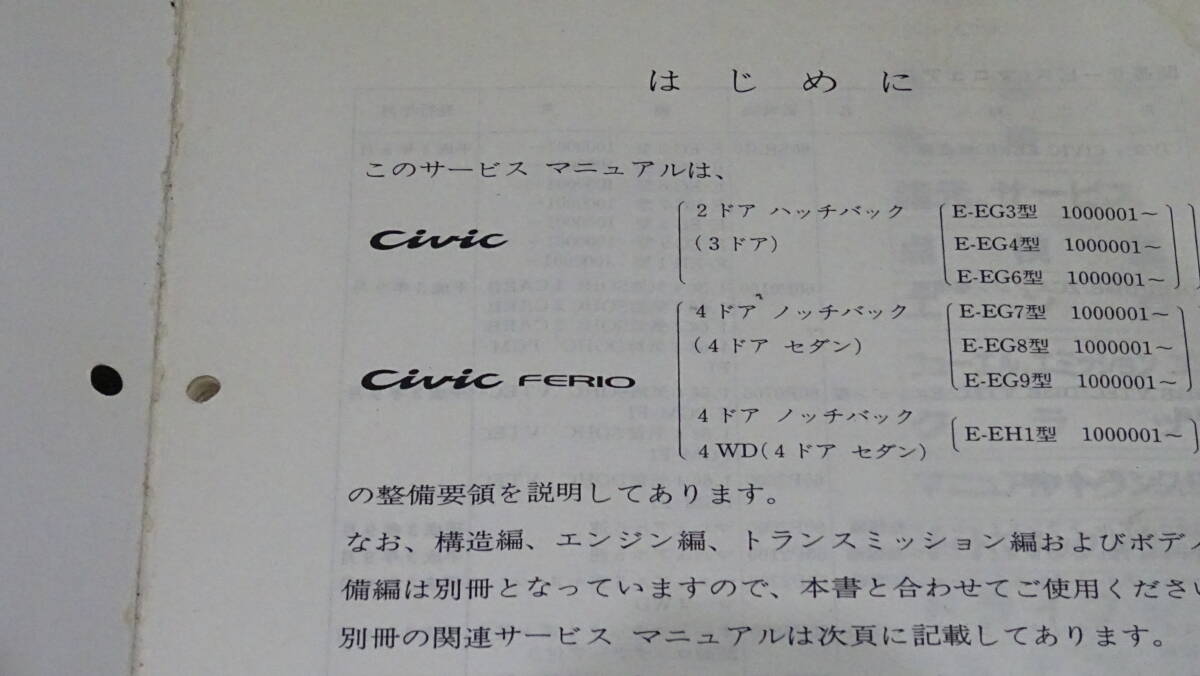 はじめに
このサービス マニュアルは、
Civic
2ドア ハッチバック
(3ドア)
E-EG3型 1000001~
E-EG4型 1000001~
E-EG6型 1000001~
Civic FERIO
4ドア ノッチバック
(4ドア セダン)
E-EG7型 1000001~
E-EG8型 1000001~
E-EG9型 1000001~
4ドア ノッチバック
4WD(4ドア セダン)
E-EH1型 1000001~
の整備要領を説明してあります。
なお、構造編、エンジン編、トランスミッション編およびボディ
備編は別冊となっていますので、本書と合わせてご使用ください
別冊の関連サービス マニュアルは次頁に記載してあります。